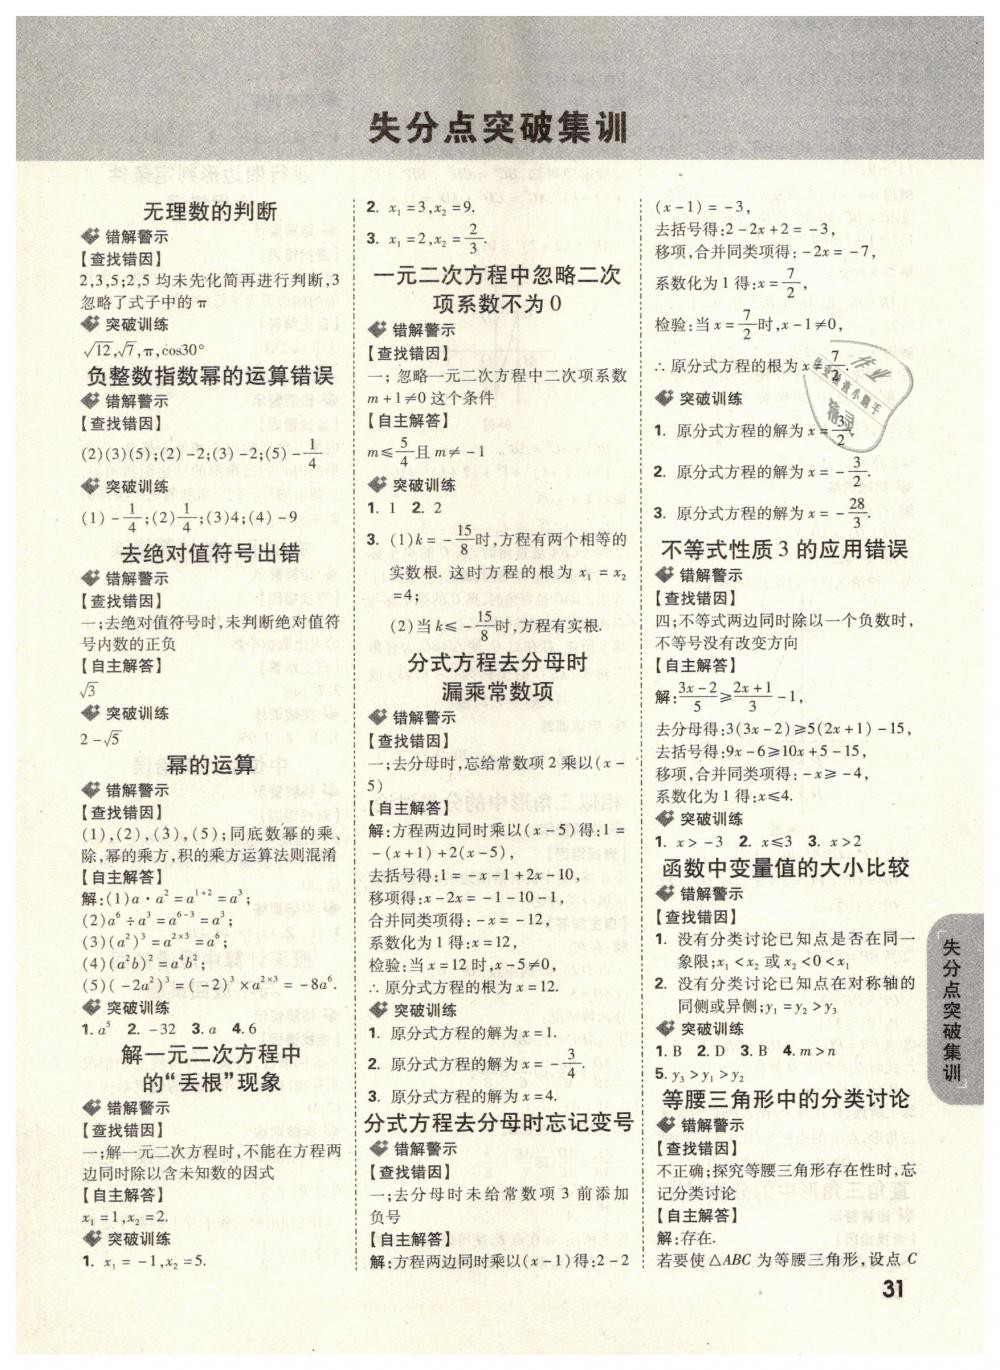 失分点突破集训
无理数的判断
错解警示
【查找错因】
2,3,5;2,5 均未先化简再进行判断,3
忽略了式子中的 π
突破训练
√12,√7,π,cos30°
负整数指数幂的运算错误
错解警示
【查找错因】
(2)(3)(5);(2)-2;(3)-2;(5)-1/4
突破训练
(1)-1/4;(2)1/4;(3)4;(4)-9
去绝对值符号出错
错解警示
【查找错因】
一;去绝对值符号时,未判断绝对值符
号内数的正负
【自主解答】
√3
突破训练
2-√5
幂的运算
错解警示
【查找错因】
(1),(2),(3),(5);同底数幂的乘、
除,幂的乘方,积的乘方运算法则混淆
【自主解答】
解:(1)a·a²=a¹⁺²=a³;
(2)a⁶÷a³=a⁶⁻³=a³;
(3)(a²)³=a²ˣ³=a⁶;
(4)(a²b)²=a⁴b²;
(5)(-2a²)³=(-2)³×a²ˣ³=-8a⁶.
突破训练
1.a⁵ 2.-32 3.a 4.6
解一元二次方程中
的“丢根”现象
错解警示
【查找错因】
一;解一元二次方程时,不能在方程两
边同时除以含未知数的因式
【自主解答】
x₁=1,x₂=2.
突破训练
1. x₁=-1,x₂=5.
2. x₁=3,x₂=9.
3. x₁=2,x₂=2/3.
一元二次方程中忽略二次
项系数不为0
错解警示
【查找错因】
一;忽略一元二次方程中二次项系数
m+1≠0这个条件
【自主解答】
m≤5/4且m≠-1
突破训练
1. 1 2. 2
3. (1)k=-15/8时,方程有两个相等的
实数根.这时方程的根为x₁=x₂
=4;
(2)当k≤-15/8时,方程有实根.
分式方程去分母时
漏乘常数项
错解警示
【查找错因】
一;去分母时,忘给常数项2乘以(x-
5)
【自主解答】
解:方程两边同时乘以(x-5)得:1=
-(x+1)+2(x-5),
去括号得:1=-x-1+2x-10,
移项得:x-2x=-1-10-1,
合并同类项得:-x=-12,
系数化为1得:x=12,
检验:当x=12时,x-5≠0,
∴原方程的根为x=12.
突破训练
1. 原分式方程的解为x=1.
2. 原分式方程的解为x=-3/4.
3. 原分式方程的解为x=4.
分式方程去分母时忘记变号
错解警示
【查找错因】
一;去分母时未给常数项3前添加
负号
【自主解答】
解:方程两边同时乘以(x-1)得:2-2
(x-1)=-3,
去括号得:2-2x+2=-3,
移项,合并同类项得:-2x=-7,
系数化为1得:x=7/2,
检验:当x=7/2时,x-1≠0,
∴原分式方程的根为x=7/2.
突破训练
1. 原分式方程的解为x=3/2.
2. 原分式方程的解为x=-3/2.
3. 原分式方程的解为x=-28/3.
不等式性质3的应用错误
错解警示
【查找错因】
四;不等式两边同时除以一个负数时,
不等号没有改变方向
【自主解答】
解:(3x-2)/5≥(2x+1)/3-1,
去分母得:3(3x-2)≥5(2x+1)-15,
去括号得:9x-6≥10x+5-15,
移项,合并同类项得:-x≥-4,
系数化为1得:x≤4.
突破训练
1. x>-3 2. x≤3 3. x>2
函数中变量值的大小比较
错解警示
【查找错因】
1. 没有分类讨论已知点是否在同一
象限;x₁<x₂或x₂<0<x₁
2. 没有分类讨论已知点在对称轴的
同侧或异侧;y₁=y₂>y₃
突破训练
1. B 2. D 3. B 4. m>n
5. y₃>y₁>y₂
等腰三角形中的分类讨论
错解警示
【查找错因】
不正确;探究等腰三角形存在性时,忘
记分类讨论
【自主解答】
解:存在.
若要使△ABC为等腰三角形,设点C
失分点突破集训
31
作业
精灵